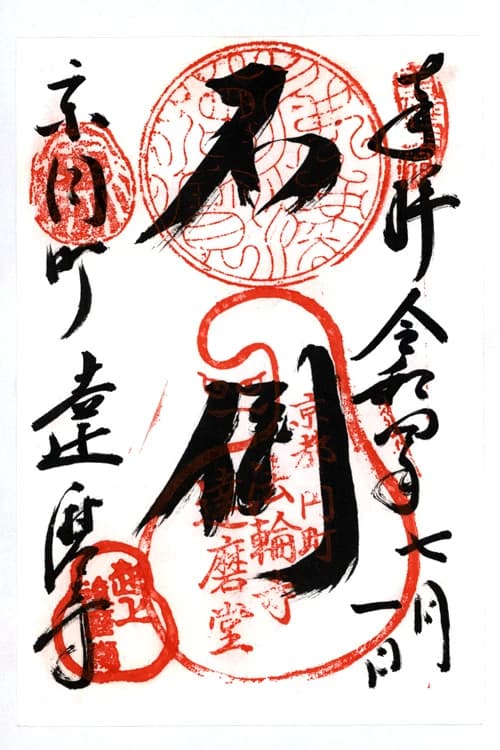 奉拝 令和四年七月一日
不倒
京円町 達磨寺
京都円町
法輪寺
達磨堂